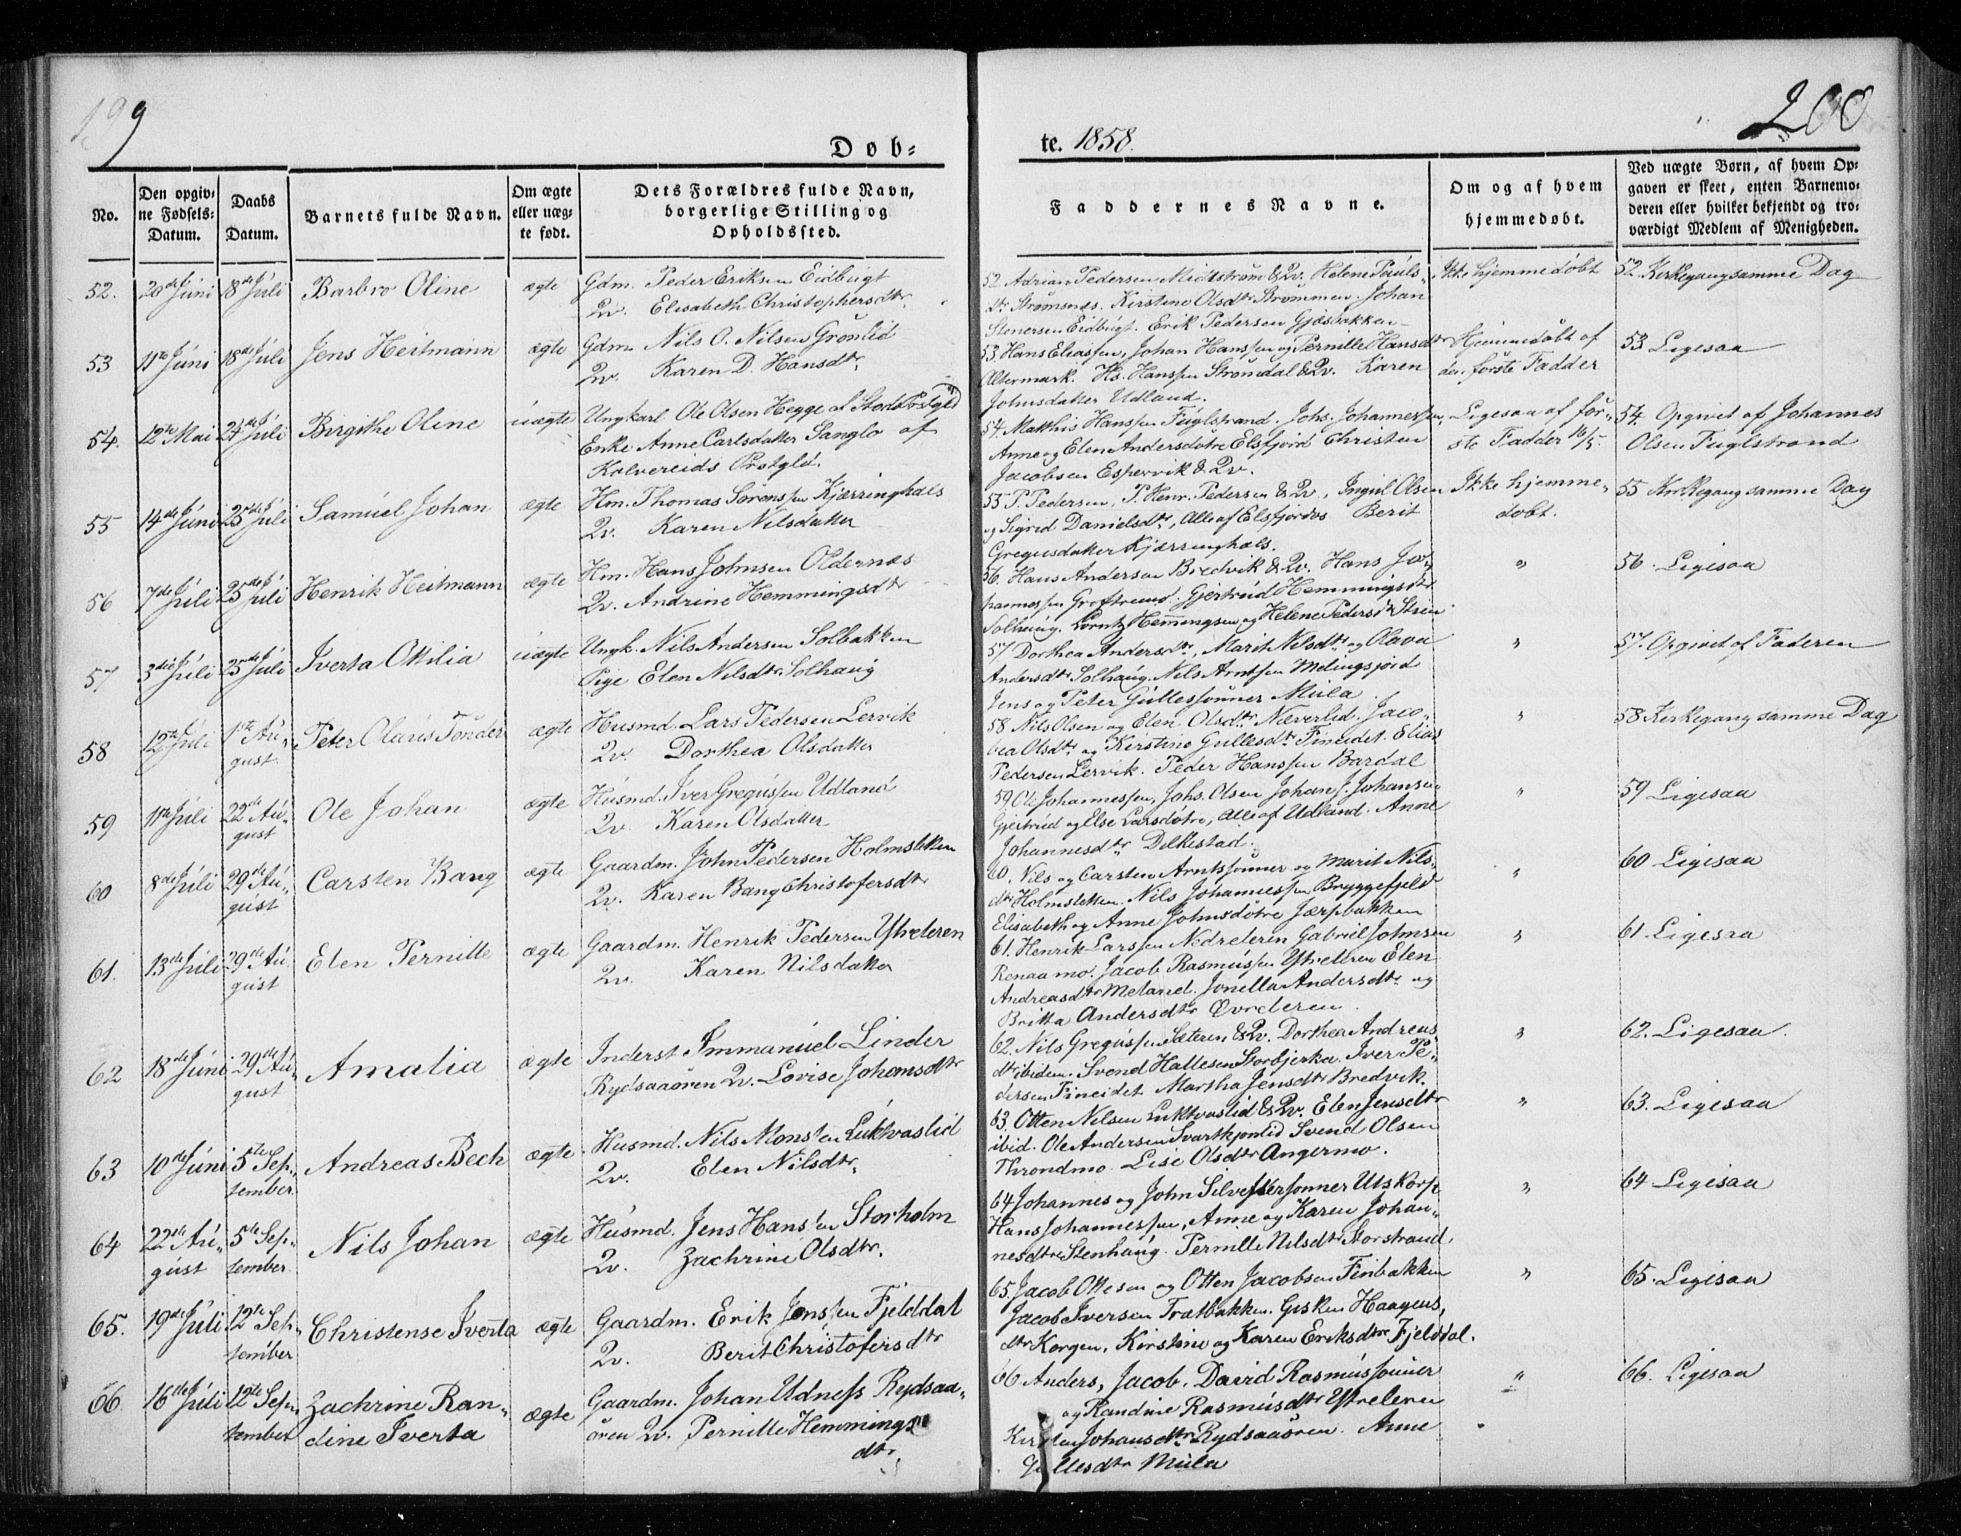 199
200
Døb-
te. 1858.
No.
Den opgiv-
ne Fødsels-
Datum.
Daabs
Datum.
Barnets fulde Navn.
Om ægte
eller uæg-
te født.
Dets Forældres fulde Navn,
borgerlige Stilling og
Opholdssted.
Faddernes Navne.
Om og af hvem
hjemmedøbt.
Ved uægte Børn, af hvem Op-
gaven er skeet, enten Barnemo-
deren eller hvilket bekjendt og tro-
værdigt Medlem af Menigheden.
52. 20de Juni 18de Juli Barbro Oline ægte Gdm. Peder Eriksen Eidbugt
2v. Elisabeth Christophersdtr.
52. Adrian Pedersen Midtstrøm & 2v. Helene Pouls-
dtr Strømsnes. Kirstine Olsdtr Strømmen. Johan
Stenersen Eidbugt. Erik Pedersen Gjæsbakken
Ikke hjemmedøbt
52. Kirkegang samme Dag
53 11te Juni 18de Juli Jens Heitmann ægte Gdm. Nils O. Nilsen Grønlid
2v. Karen D. Hansdtr.
53. Hans Eliassen, Johan Hanssen og Pernille Hansdtr
Altermark. Hs. Hanssen Strømdal & 2v. Karen
Johnsdatter Udland.
Hjemmedøbt af
den første Fadder
53 Ligesaa
54. 12te Mai 24de Juli Birgithe Oline uægte Ungkarl Ole Olsen Hegge af Stods Præstgjld
Enke Anne Carlsdatter Sanglo af
Kolvereids Prstgld.
54. Matthis Hanssen Fuglstrand. Johs. Johannessen,
Anne og Elen Andersdøtre Elsfjord Christen
Jacobsen Espervik & 2v.
Ligesaa af før-
ste Fadder 16/5.
54. Opgivet af Johannes
Olsen Fuglstrand
55 14de Juni 25de Juli Samuel Johan ægte Hm. Thomas Sørenssen Kjærringhals
2v. Karen Nilsdatter
55 P. Pedersen, P. Henr. Pedersen & 2v., Ingul Olsen
og Sigrid Danielsdtr, Alle af Elsfjordos Berit
Gregusdatter Kjærringhals.
Ikke hjemme-
døbt.
55 Kirkegang samme Dag
56 7de Juli 25de Juli Henrik Heitmann ægte Hm. Hans Johnsen Oldernæs
2v. Andrine Hemmingsdtr
56. Hans Andersen Bredvik & 2v. Hans Jo-
hannessen Grøftrem. Gjertrud Hemmingsdtr
Solhaug. Lorntz Hemmingsen og Helene Pedersdtr
"
56. Ligesaa
57 3die Juli 25de Juli Iverta Otilia uægte Ungk. Nils Andersen Solbakken
Pige Elen Nilsdtr. Solhaug
57 Dorthea Andersdtr, Marit Nilsdtr og Olava
Andersdtr Solhaug. Nils Arntsen Melingsjord
Jens og Peter Gullessønner Mula
"
57. Opgivet af Faderen
58 12te Juli 1ste Au-
gust. Peter Olaus Tønder ægte Husmd. Lars Pedersen Lervik
2v. Dorthea Olsdatter
58 Nils Olsen og Elen Olsdtr Næverlid. Jaco-
bea Olsdtr og Kirstine Gullesdtr Fineidet. Elias
Pedersen Lervik. Peder Hanssen Bardal
"
58 Kirkegang samme Dag
59 11te Juli 22de Au-
gust Ole Johan ægte Husmd. Iver Gregussen Udland
2v. Karen Olsdatter
59 Ole Johannessen, Johs. Olsen Johan J. Johansen
Gjertrud og Else Larsdøtre, Alle af Udland. Anne
Johannesdtr Delkestad.
"
59 Ligesaa
60 8de Juli 29de Au-
gust Carsten Bang ægte Gaardm. John Pedersen Holmsletten
2v. Karen Bang Christofersdtr
60. Nils og Carsten Arntssønner og Marit Nils-
dtr Holmsletten. Nils Johannessen Bryggefjeld
Elisabeth og Anne Johnsdøtre Jærpbakken
"
60 Ligesaa
61. 13de Juli 29de Au-
gust Elen Pernille ægte Gaardm. Henrik Pedersen Ytreleren
2v. Karen Nilsdatter
61. Henrik Larssen Nedreleren Gabriel Johnsen
Renaamo. Jacob Rasmussen Ytreleren Elen
Andreasdtr Meland. Jonella Andersdtr og
Britta Andersdtr Øvreleren
"
61 Ligesaa
62 18de Juni 29de Au-
gust Amalia ægte Inderst Immanuel Linder
Rydsaaøren 2v. Lovise Johansdtr
62. Nils Gregussen Sæteren & 2v. Dorthea Andreas-
dtr ibidem. Svend Hallesen Storbjerka. Iver Pe-
dersen Fineidet Martha Jensdtr Bredvik.
"
62. Ligesaa.
63 10de Juni 5te Sep-
tember Andreas Bech ægte Husmd. Nils Monsen Luktvaslid
2v. Elen Nilsdtr.
63. Otten Nilsen Luktvaslid & 2v. Elen Jensdtr
ibid. Ole Andersen Svartkjønlid Svend Olsen
Throndmo. Lise Olsdtr Angermo.
"
63. Ligesaa
64 22de Au-
gust 5te Sep-
tember Nils Johan ægte Husmd. Jens Hansen Storholm
2v. Zachrine Olsdtr.
64 Johannes og John Silvestersønner Utskorpe
Hans Johannessen, Anne og Karen Johan-
nesdtre Stenhaug. Pernille Nilsdtr Storstrand
"
64 Ligesaa
65. 19de Juli 12te Sep-
tember Christense Iverta ægte Gaardm. Erik Jonssen Fjelddal
2v. Berit Christofersdtr
65. Jacob Ottesen og Otten Jacobsen Finbakken
Jacob Iversen Tratbakken. Gisken Haagens-
dtr Korgen, Kirstine og Karen Eriksdtre Fjelddal.
"
65. Ligesaa
66 16de Juli 12te Sep-
tember Zachrine Ran-
dine Iverta ægte Gaardm. Johan Udness Rydsaa-
øren 2v. Pernille Hemmings-
dtr,
66 Anders, Jacob, David Rasmussønner
og Randine Rasmusdtr Ytreleren
Kirsten Johansdtr Rydsaaøren. Anne
Gullesdtr Mula
"
66. Ligesaa